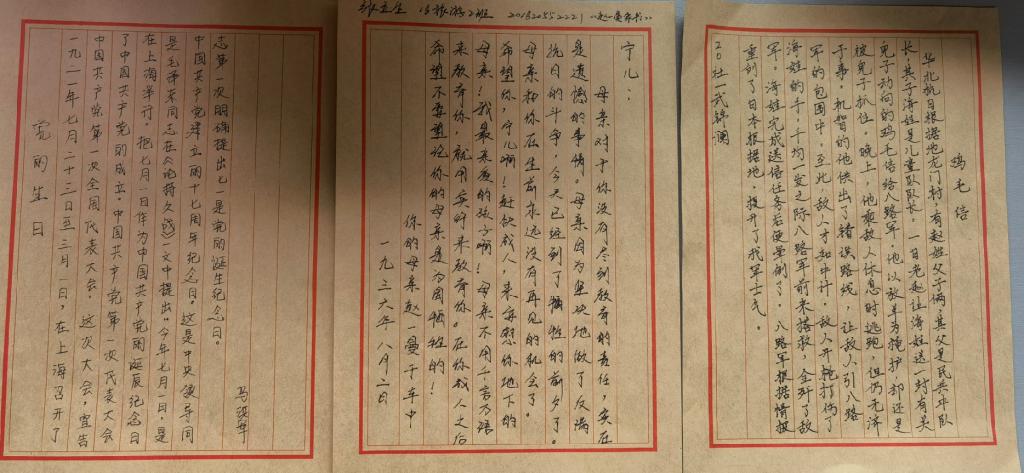 党的生日
一九二一年七月二十三日至三月一日，在上海召开了
中国共产党第一次全国代表大会。这次大会，宣告
了中国共产党的成立。中国共产党第一次代表大会
在上海举行。把七月一日作为中国共产党的诞辰纪念日
是毛泽东同志在《论持久战》一文中提出“今年七月一日，是
中国共产党建立的十七周年纪念日。这是中央领导同
志第一次明确提出七一是党的诞生纪念日。
18旅游2班 《赵一曼家书》
宁儿：
母亲对于你没有尽到教育的责任，实在
是遗憾的事情。母亲因为坚决地做了反满
抗日的斗争，今天已经到了牺牲的前夕了。
母亲和你在生前永远没有再见的机会了。
希望你，宁儿啊！赶快成人，来安慰你地下的
母亲！我最亲爱的孩子啊！母亲不用千言万语
来教育你，就用实行来教育你。在你成人之后
希望不要忘记你的母亲是为国牺牲的！
你的母亲赵一曼于车中
一九三六年八月二日
鸡毛信
华北抗日根据地龙门村，有赵姓父子俩，其父是民兵中队
长，其子海娃是儿童队队长。一日老赵让海娃送一封有关
鬼子动向的鸡毛信给八路军，他以放羊为掩护却还是
被鬼子抓住。晚上，他乘敌人休息时逃跑，但仍无济
于事，机智的他供出了错误路线，让敌人引八路
军的包围中，至此，敌人才知中计，敌人开枪打伤了
海娃的手，千均一发之际八路军前来搭救，全歼了敌
军。海娃完成送信任务后便晕倒了，八路军根据情报
重创了日本根据地，提升了我军士气。
20社一武韩澜